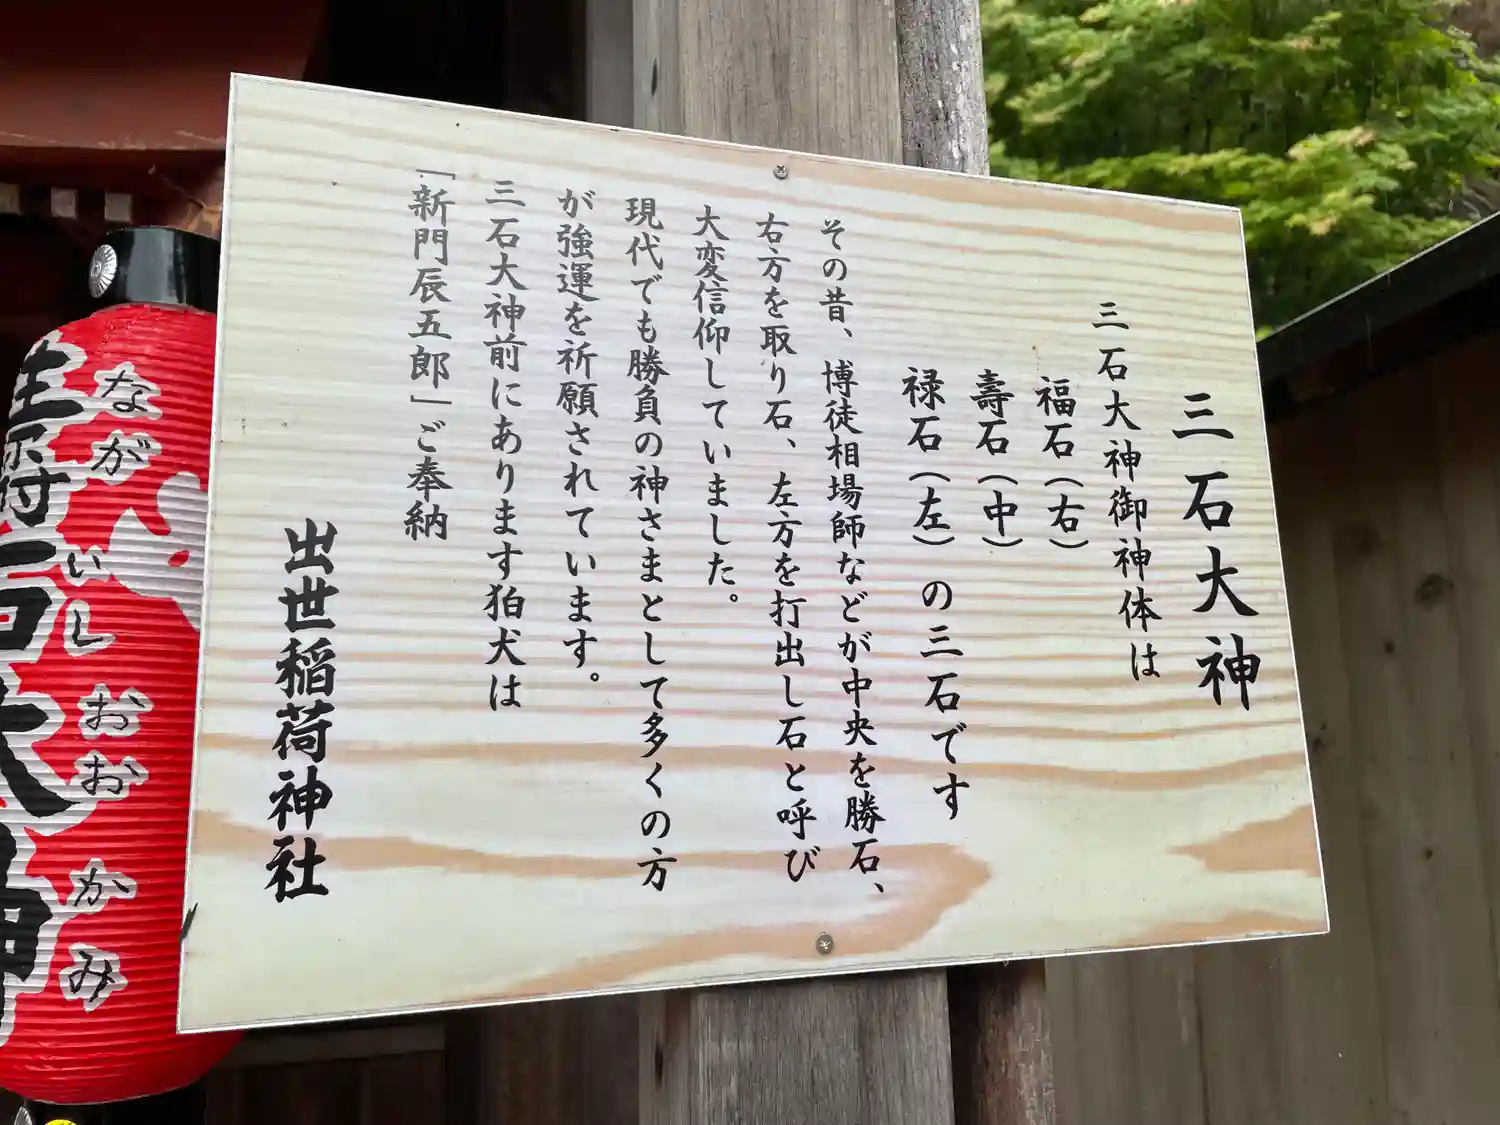 三石大神
三石大神御神体は
福石（右）
壽石（中）
禄石（左）の三石です
その昔、博徒相場師などが中央を勝石、
右方を取り石、左方を打出し石と呼び
大変信仰していました。
現代でも勝負の神さまとして多くの方
が強運を祈願されています。
三石大神前にあります狛犬は
「新門辰五郎」ご奉納
出世稲荷神社
ながいしおおかみ
石大神